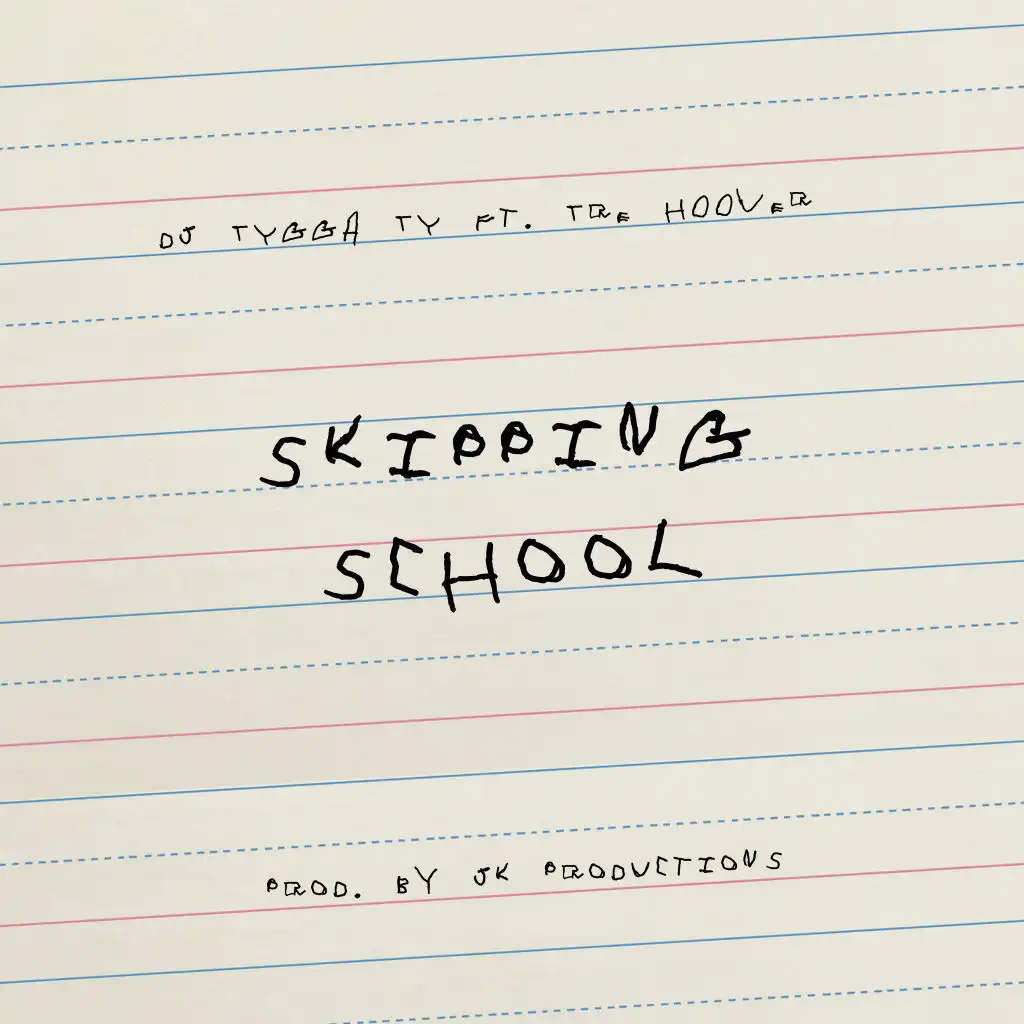 DJ TYGGA TY FT. TRE HOOVER
SKIPPING
SCHOOL
PROD. BY JK PRODUCTIONS